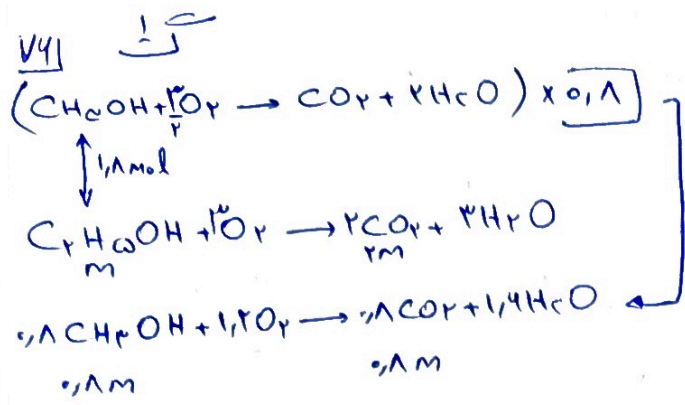 ۷۶۱
(CH۳OH + ۳/۲ O۲ → CO۲ + ۲H۲O) × ۰,۸
۱,۸ mol
C۲H۵OH + ۳O۲ → ۲CO۲ + ۳H۲O
m ۲m
۰,۸CH۳OH + ۱,۲O۲ → ۰,۸CO۲ + ۱,۶H۲O
۰,۸m ۰,۸m